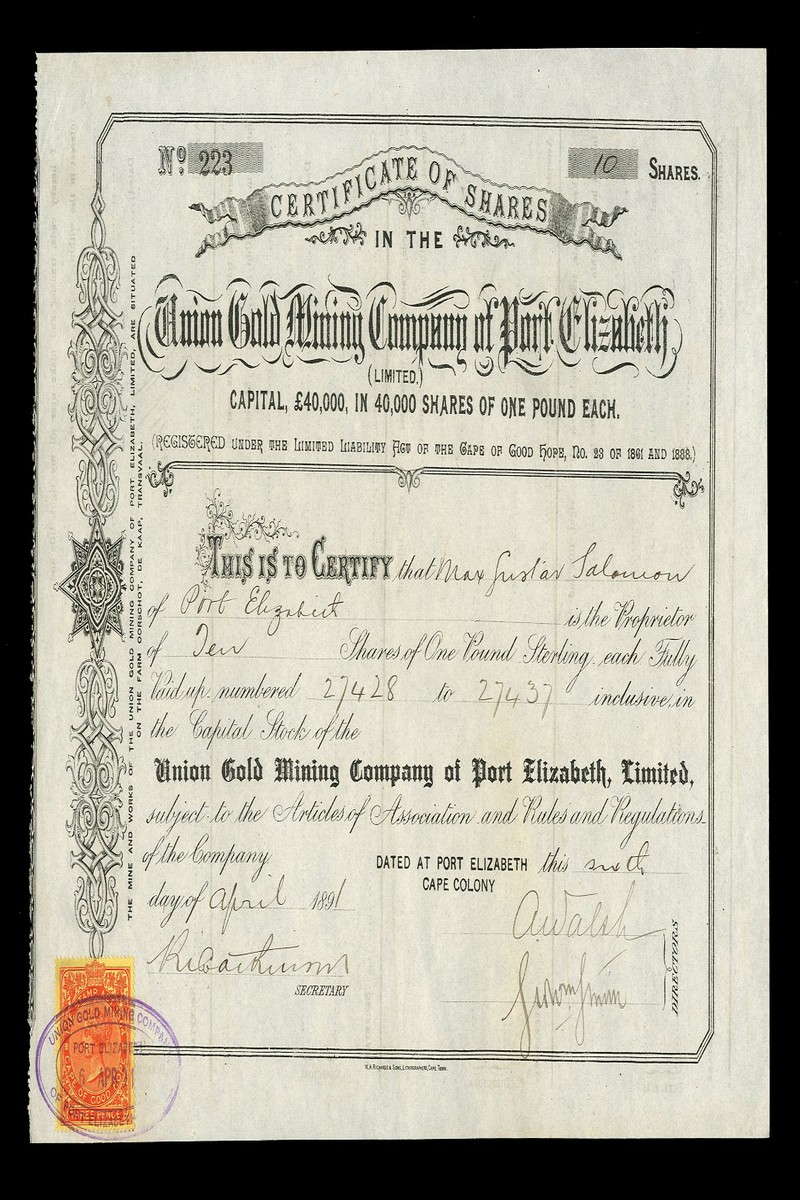 No 223
10 SHARES.
CERTIFICATE OF SHARES
IN THE
Union Gold Mining Company of Port Elizabeth
(LIMITED,)
CAPITAL, £40,000, IN 40,000 SHARES OF ONE POUND EACH.
(REGISTERED UNDER THE LIMITED LIABILITY ACT OF THE CAPE OF GOOD HOPE, No. 23 OF 1861 AND 1888.)
THE MINE AND WORKS OF THE UNION GOLD MINING COMPANY OF PORT ELIZABETH, LIMITED, ARE SITUATED
ON THE FARM OORSCHOT, DE KAAP, TRANSVAAL.
THIS IS TO CERTIFY that Max Gustav Salomon
of Port Elizabeth is the Proprietor
of Ten Shares of One Pound Sterling each Fully
Paid up numbered 27428 to 27437 inclusive, in
the Capital Stock of the
Union Gold Mining Company of Port Elizabeth, Limited,
subject to the Articles of Association and Rules and Regulations
of the Company
DATED AT PORT ELIZABETH this sixth
CAPE COLONY
day of April 1891
AWalsh
SECRETARY
DIRECTORS
UNION GOLD MINING COMPANY
PORT ELIZABETH
6 APR
OF GOOD
THREE PENCE
W.A. RICHARDS & SONS, LITHOGRAPHERS, CAPE TOWN.